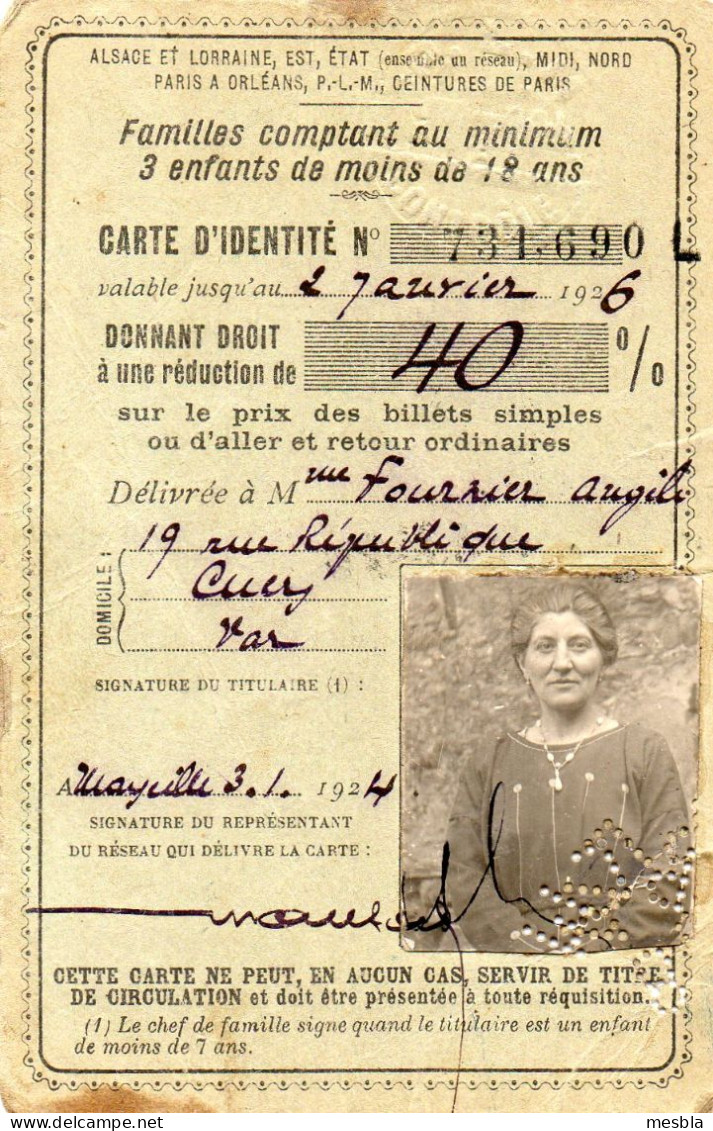 ALSACE ET LORRAINE, EST, ÉTAT (ensemble du réseau), MIDI, NORD
PARIS A ORLÉANS, P.-L.-M., CEINTURES DE PARIS
Familles comptant au minimum
3 enfants de moins de 18 ans
CARTE D'IDENTITÉ No 731.690 L
valable jusqu'au 2 Janvier 1926
DONNANT DROIT
à une réduction de 40 %
sur le prix des billets simples
ou d'aller et retour ordinaires
Délivrée à Mme Fournier
19 rue République
DOMICILE :
Cuers
Var
SIGNATURE DU TITULAIRE (1) :
A Marseille 3.1. 1924
SIGNATURE DU REPRÉSENTANT
DU RÉSEAU QUI DÉLIVRE LA CARTE :
CETTE CARTE NE PEUT, EN AUCUN CAS, SERVIR DE TITRE
DE CIRCULATION et doit être présentée à toute réquisition.
(1) Le chef de famille signe quand le titulaire est un enfant
de moins de 7 ans.
mesbla